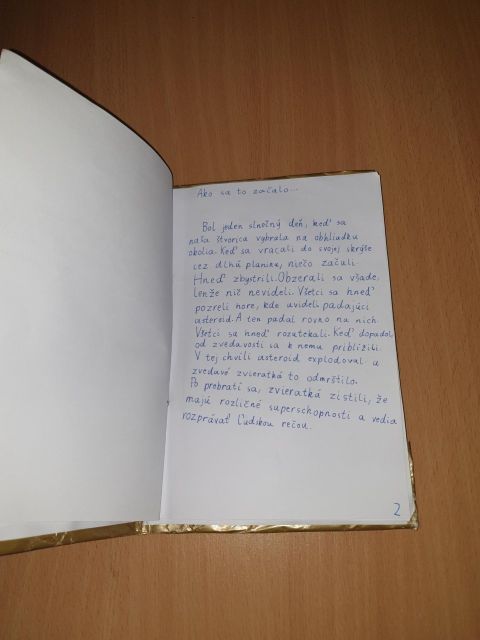 Ako sa to začalo...
Bol jeden slnečný deň, keď sa
naša štvorica vybrala na obhliadku
okolia. Keď sa vracali do svojej skrýše
cez dlhú planinu, niečo začuli.
Hneď zbystrili. Obzerali sa všade,
lenže nič nevideli. Všetci sa hneď
pozreli hore, kde uvideli padajúci
asteroid. A ten padal rovno na nich.
Všetci sa hneď rozutekali. Keď dopadol,
od zvedavosti sa k nemu priblížili.
V tej chvíli asteroid explodoval a
zvedavé zvieratká to odmrštilo.
Po prebratí sa, zvieratká zistili, že
majú rozličné superschopnosti a vedia
rozprávať Ľudskou rečou.
2